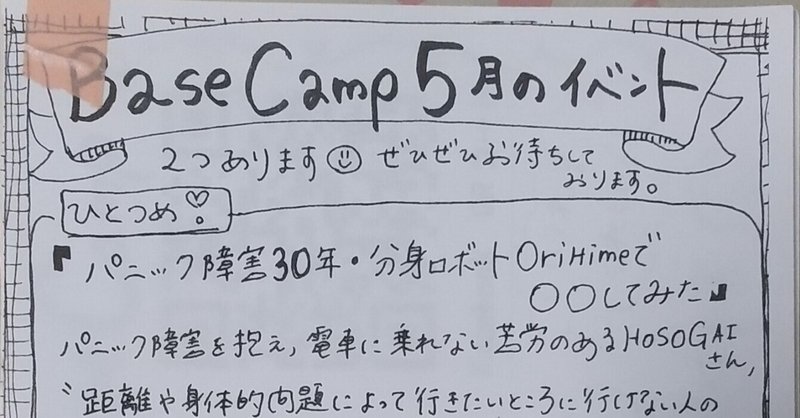 Base Camp 5月のイベント
2つあります ぜひぜひお待ちして
おります。
ひとつめ
『パニック障害30年・分身ロボットOriHimeで
〇〇してみた』
パニック障害を抱え,電車に乗れない苦労のあるHOSOGAI
さん,
〝距離や身体的問題によって行きたいところに行けない人の